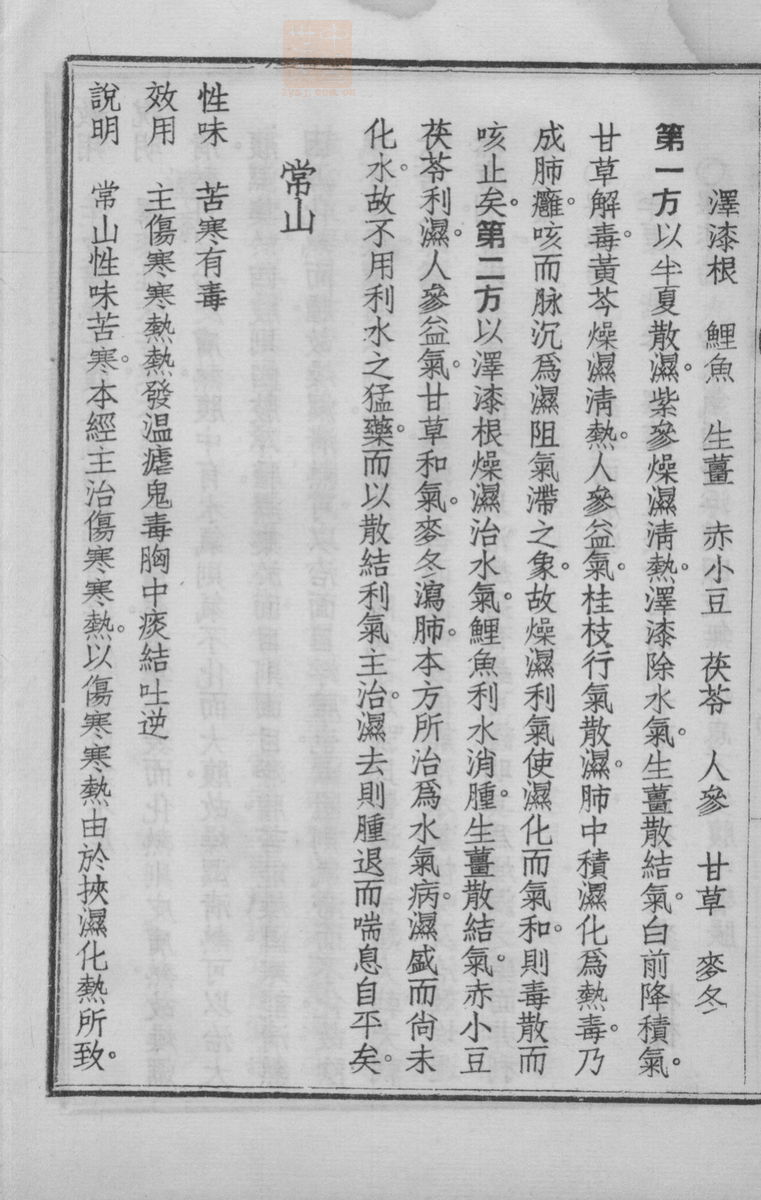 澤漆根　鯉魚　生薑　赤小豆　茯苓　人參　甘草　麥冬
第一方以半夏散濕。紫參燥濕淸熱。澤漆除水氣。生薑散結氣。白前降積氣。
甘草解毒。黃芩燥濕淸熱。人參益氣。桂枝行氣散濕。肺中積濕化爲熱毒。乃
成肺癰。咳而脉沉爲濕阻氣滯之象。故燥濕利氣使濕化而氣和。則毒散而
咳止矣。第二方以澤漆根燥濕治水氣。鯉魚利水消腫。生薑散結氣。赤小豆
茯苓利濕。人參益氣。甘草和氣。麥冬瀉肺。本方所治爲水氣病。濕盛而尙未
化水。故不用利水之猛藥。而以散結利氣主治。濕去則腫退而喘息自平矣。
常山
性味　苦寒有毒
效用　主傷寒寒熱熱發溫瘧鬼毒胸中痰結吐逆
說明　常山性味苦寒。本經主治傷寒寒熱。以傷寒寒熱由於挾濕化熱所致。